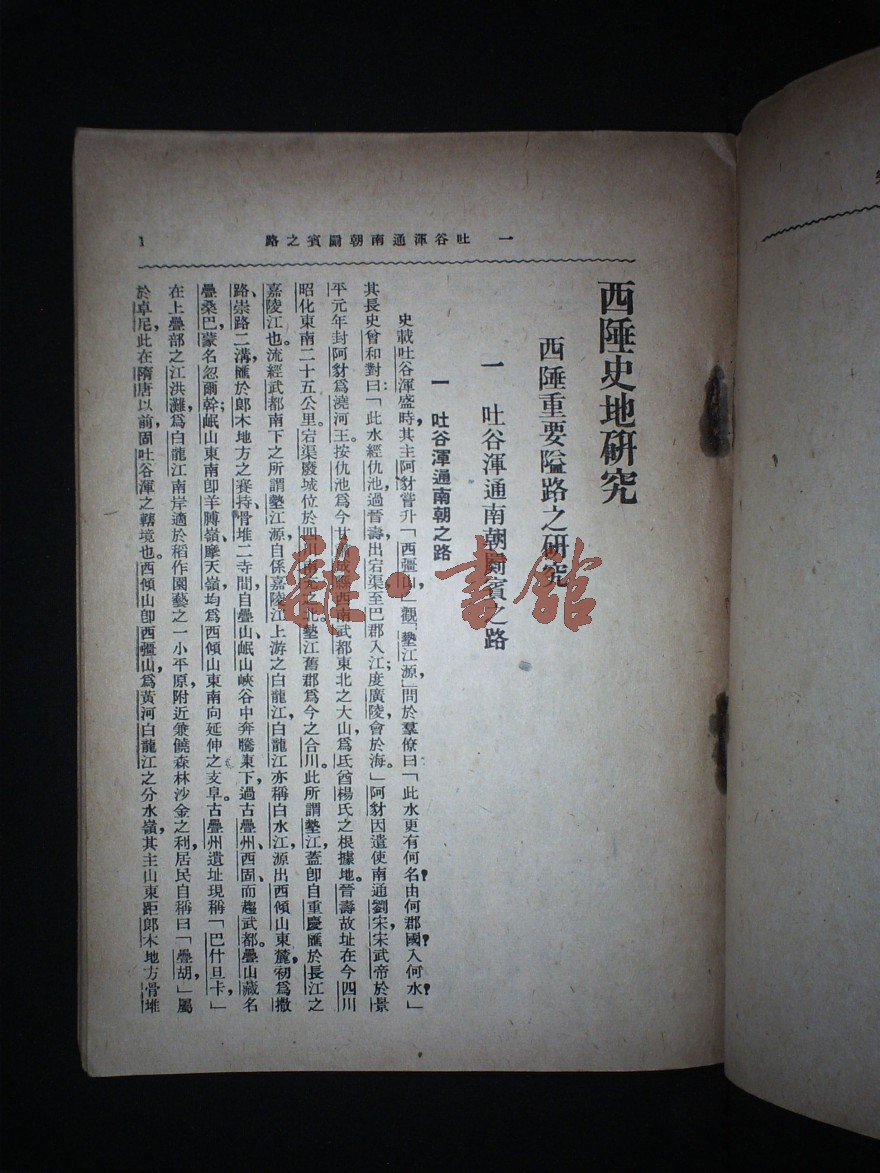 一　吐谷渾通南朝罽賓之路
1
西陲史地研究
西陲重要隘路之研究
一　吐谷渾通南朝罽賓之路
一　吐谷渾通南朝之路
史載吐谷渾盛時，其主阿豺嘗升「西疆山」，觀「墊江源」問於羣僚曰「此水更有何名？由何郡國入何水？」
其長史曾和對曰：「此水經仇池，過晉壽，出宕渠；至巴郡入江；度廣陵，會於海。」阿豺因遣使南通劉宋，宋武帝於景
平元年封阿豺爲澆河王。按仇池爲今甘肅成縣西南武都東北之大山，爲氐酋楊氏之根據地。晉壽故址在今四川
昭化東南二十五公里。宕渠廢城位於四川南充之北，墊江舊郡爲今之合川。此所謂墊江，蓋卽自重慶匯於長江之
嘉陵江也。流經武都南下之所謂墊江源，自係嘉陵江上游之白龍江，白龍江亦稱白水江，源出西傾山東麓，初爲撒
路、崇路二溝，匯於郎木地方之賽持、骨堆二寺間，自疊山、岷山峽谷中奔騰東下，過古疊州、西固，而趨武都。疊山藏名
疊桑巴，蒙名忽爾幹；岷山東南卽羊膊嶺，摩天嶺，均爲西傾山東南向延伸之支阜。古疊州遺址現稱「巴什旦卡」，
在上疊部之江洪灘，爲白龍江南岸適於稻作園藝之一小平原，附近兼饒森林沙金之利，居民自稱曰「疊胡」，屬
於卓尼，此在隋唐以前，固吐谷渾之轄境也。西傾山卽西疆山，爲黃河白龍江之分水嶺，其主山東距郎木地方骨堆
雜·書館